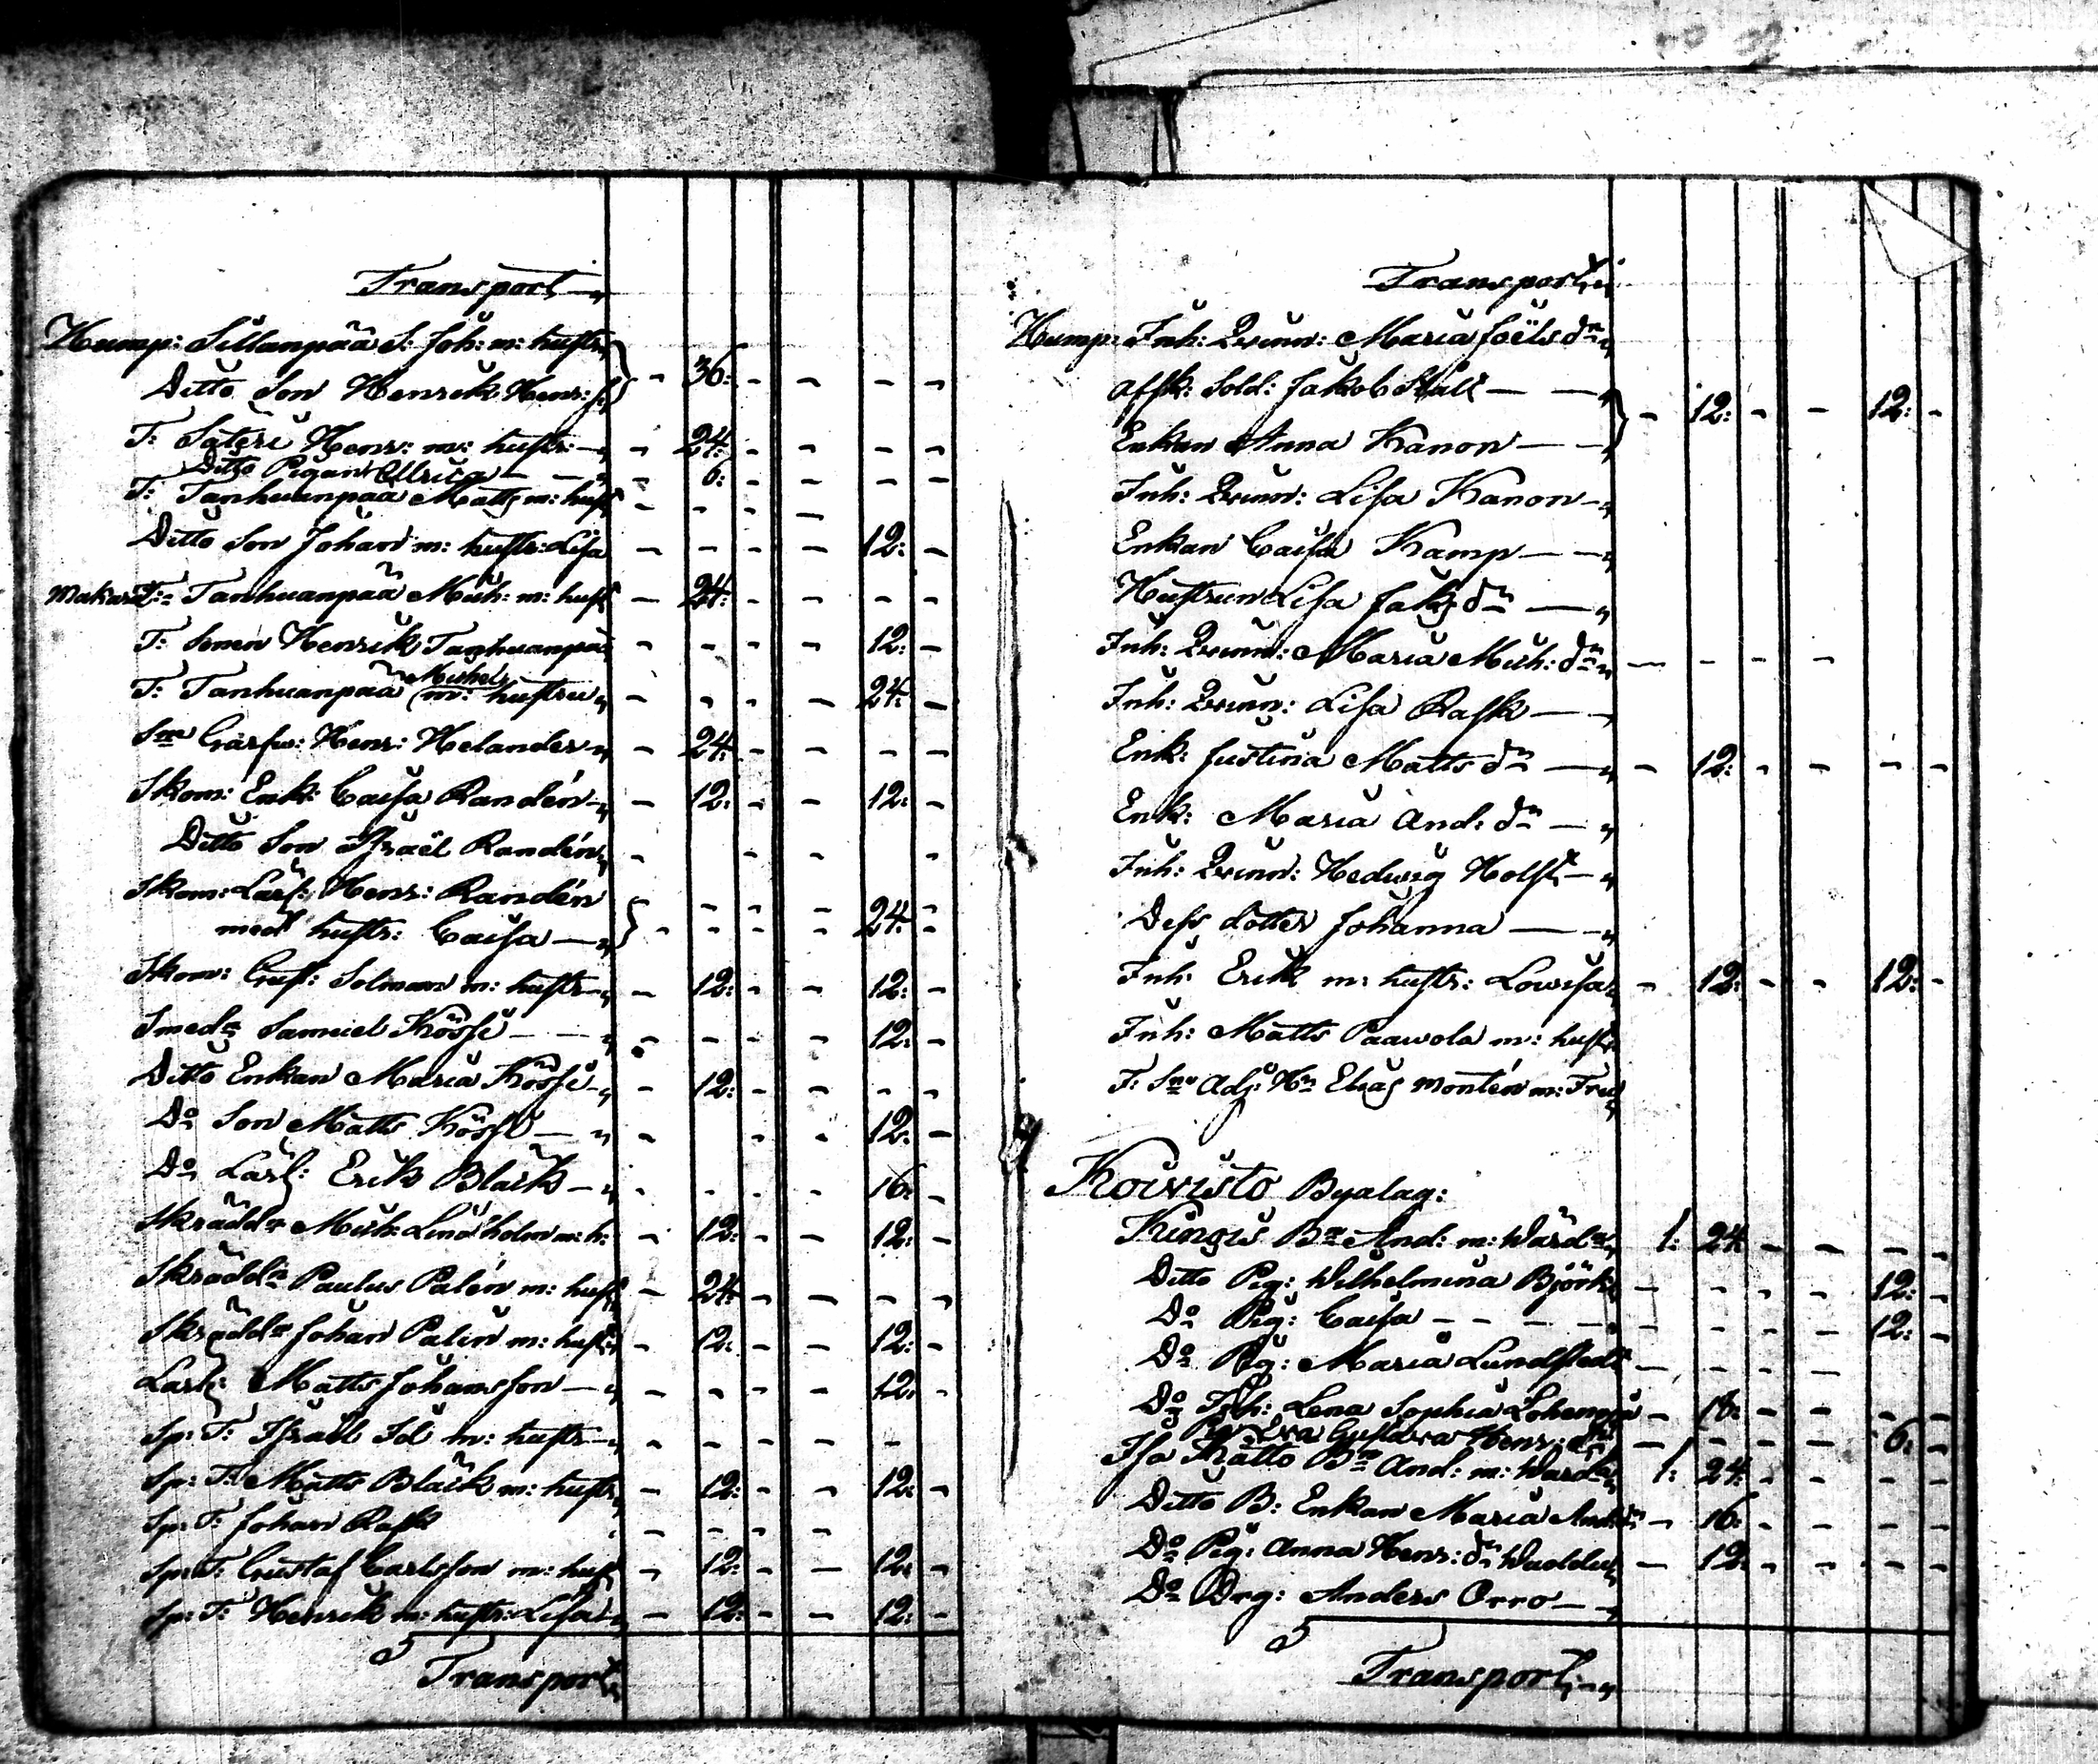 Transport
Hump: Sillanpää S: Joh: m: hustr
Ditto Son Henrik Henr: s: - 36: - - - -
T: Säteri Henr: m: hustr: - - 24: - - - -
Ditto Pigan Ulrica - - - 6: - - - -
T: Tanhuanpää Matts m: hust - - - -
Ditto Son Johan m: hustr: Lisa - - - - 12: -
Makar T: Tanhuanpää Mich: m: hust - 24: - - - -
T: Henrik Tanhuanpää - - - - 12: -
T: Tanhuanpää Michel m: hustru - - - - 24: -
Henr: Helander - 24: - - - -
Skom: Enk: Caisa Randén - 12: - - 12: -
Ditto Son Israël Randén - - - -
Skom: Lärl: Henr: Randén - - - 24: -
med hustr: Caisa - - - - - -
Skom: Gust: Solman m: hustr - 12: - - 12: -
Smedn Samuel Kössi - - - - - - 12: -
Ditto Enkan Maria Kössi - 12: - - - -
Do Son Matts Kössi - - - - 12: -
Do Lärl: Erik Bläck - - - - 16: -
Skräddn Mich: Lindholm m: h: - 12: - - 12: -
Skräddn Paulus Palén m: hust - 24: - - - -
Skräddn Johan Palén m: hustr - 12: - - 12: -
Lärl: Matts Johansson - - - - 12: -
Sp: T: Israël Id m: hustr - - - - - -
Sp: T: Matts Bläck m: hustr - 12: - - 12: -
Sp: T: Johan Rask - - - -
Sp: T: Gustaf Carlsson m: hust - 12: - - 12: -
Sp: T: Henrik m: hustr: Lisa - 12: - - 12: -
Transport
Transport
Hump: Inh: Qvinn: Maria Joëls dr
Afsk: Sold: Jakob Stål - - 12: - - 12: -
Enkan Anna Kanon
Inh: Qvinn: Lisa Kanon
Enkan Caisa Kamp
Hustrun Lisa Jak: dr
Inh: Qvinn: Maria Mich: dr - - - -
Inh: Qvinn: Lisa Rask
Enk: Justina Matts dr - 12: - - - -
Enk: Maria And: dr
Inh: Qvinn: Hedwig Holst
Dess dotter Johanna
Inh: Erik m: hustr: Lowisa - 12: - - 12: -
Inh: Matts Paawola m: hustr
Adj: Hr Elias Montén m: Fru
Koivisto Byalag:
Kungus Bn And: m: Wärdn 1: 24: - - - -
Ditto Pig: Wilhelmina Björk - - - - 12: -
Do Pig: Caisa - - - - - - - 12: -
Do Pig: Maria Lundstedt - - - -
Do Inh: Lena Sophia - 18: - - - -
Pig Eva Gustava Henr: dr - - - - 6: -
Iso Kätto Bn And: m: Wärdn 1: 24: - - - -
Ditto B: Enkan Maria And: dr - 16: - - - -
Do Pig: Anna Henr: dr - 12: - - - -
Do Drg: Anders Orro
Transport